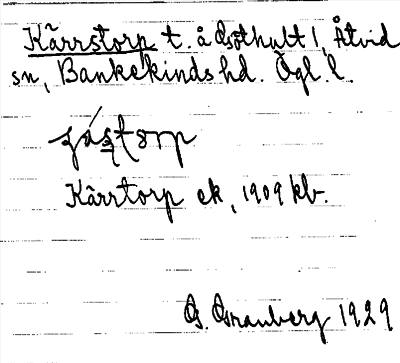 Kärrstorp t. å Göthult 1, Åtvid
sn, Bankekinds hd. Ögl. l.
Kärrtorp ek, 1909 kb.
G. Granberg 1929